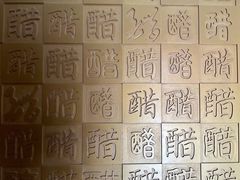 醋 醋 醋 醋 醋
醋 醋 醋 醋 醋 醋
醋 醋 醋 醋 醋
醋 醋 醋 醋 醋 醋
醋 醋 醋 醋 醋 醋